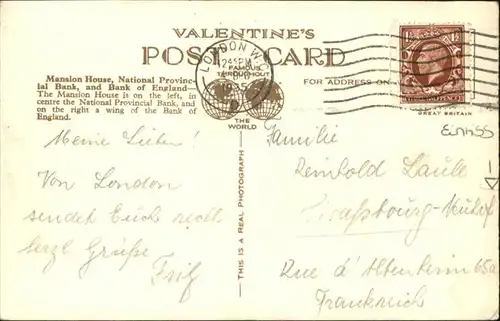 VALENTINE'S
POST CARD
FAMOUS
THROUGHOUT
THE
WORLD
LONDON W.
1935
FOR ADDRESS ON
GREAT BRITAIN
Mansion House, National Provinc-
ial Bank, and Bank of England—
The Mansion House is on the left, in
centre the National Provincial Bank, and
on the right a wing of the Bank of
England.
THIS IS A REAL PHOTOGRAPH
Meine Lieben!
Von London
sendet Euch recht
herzl Grüße
Familie
Reinhold Laule
Straßbourg-Neuhof
Rue d'Altenheim 65a
Frankreich